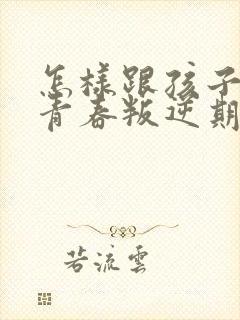 怎樣跟孩子
青春叛逆期
若流雲